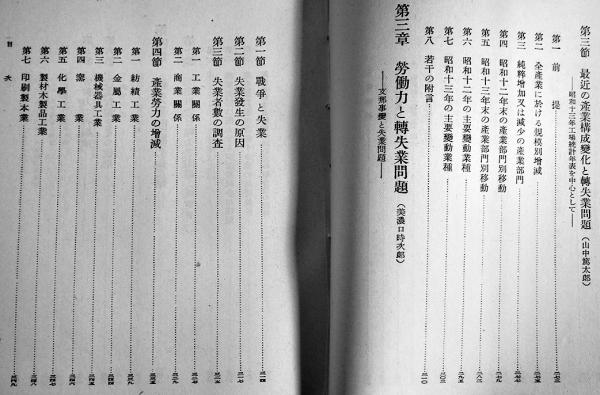 第三節 最近の產業構成變化と轉失業問題（山中篤太郎）
――昭和十三年工場統計年表を中心として――
第一 前提
第二 全產業に於ける規模別增減
第三 純粹增加又は減少の產業部門
第四 昭和十二年末の產業部門別移動
第五 昭和十三年末の產業部門別移動
第六 昭和十二年の主要變動業種
第七 昭和十三年の主要變動業種
第八 若干の附言
第三章 勞働力と轉失業問題（美濃口時次郎）
――支那事變と失業問題――
第一節 戰爭と失業
第二節 失業發生の原因
第三節 失業者數の調査
第一 工業關係
第二 商業關係
第四節 產業勞力の增減
第一 紡績工業
第二 金屬工業
第三 機械器具工業
第四 窯業
第五 化學工業
第六 製材木製品工業
第七 印刷製本業
目次